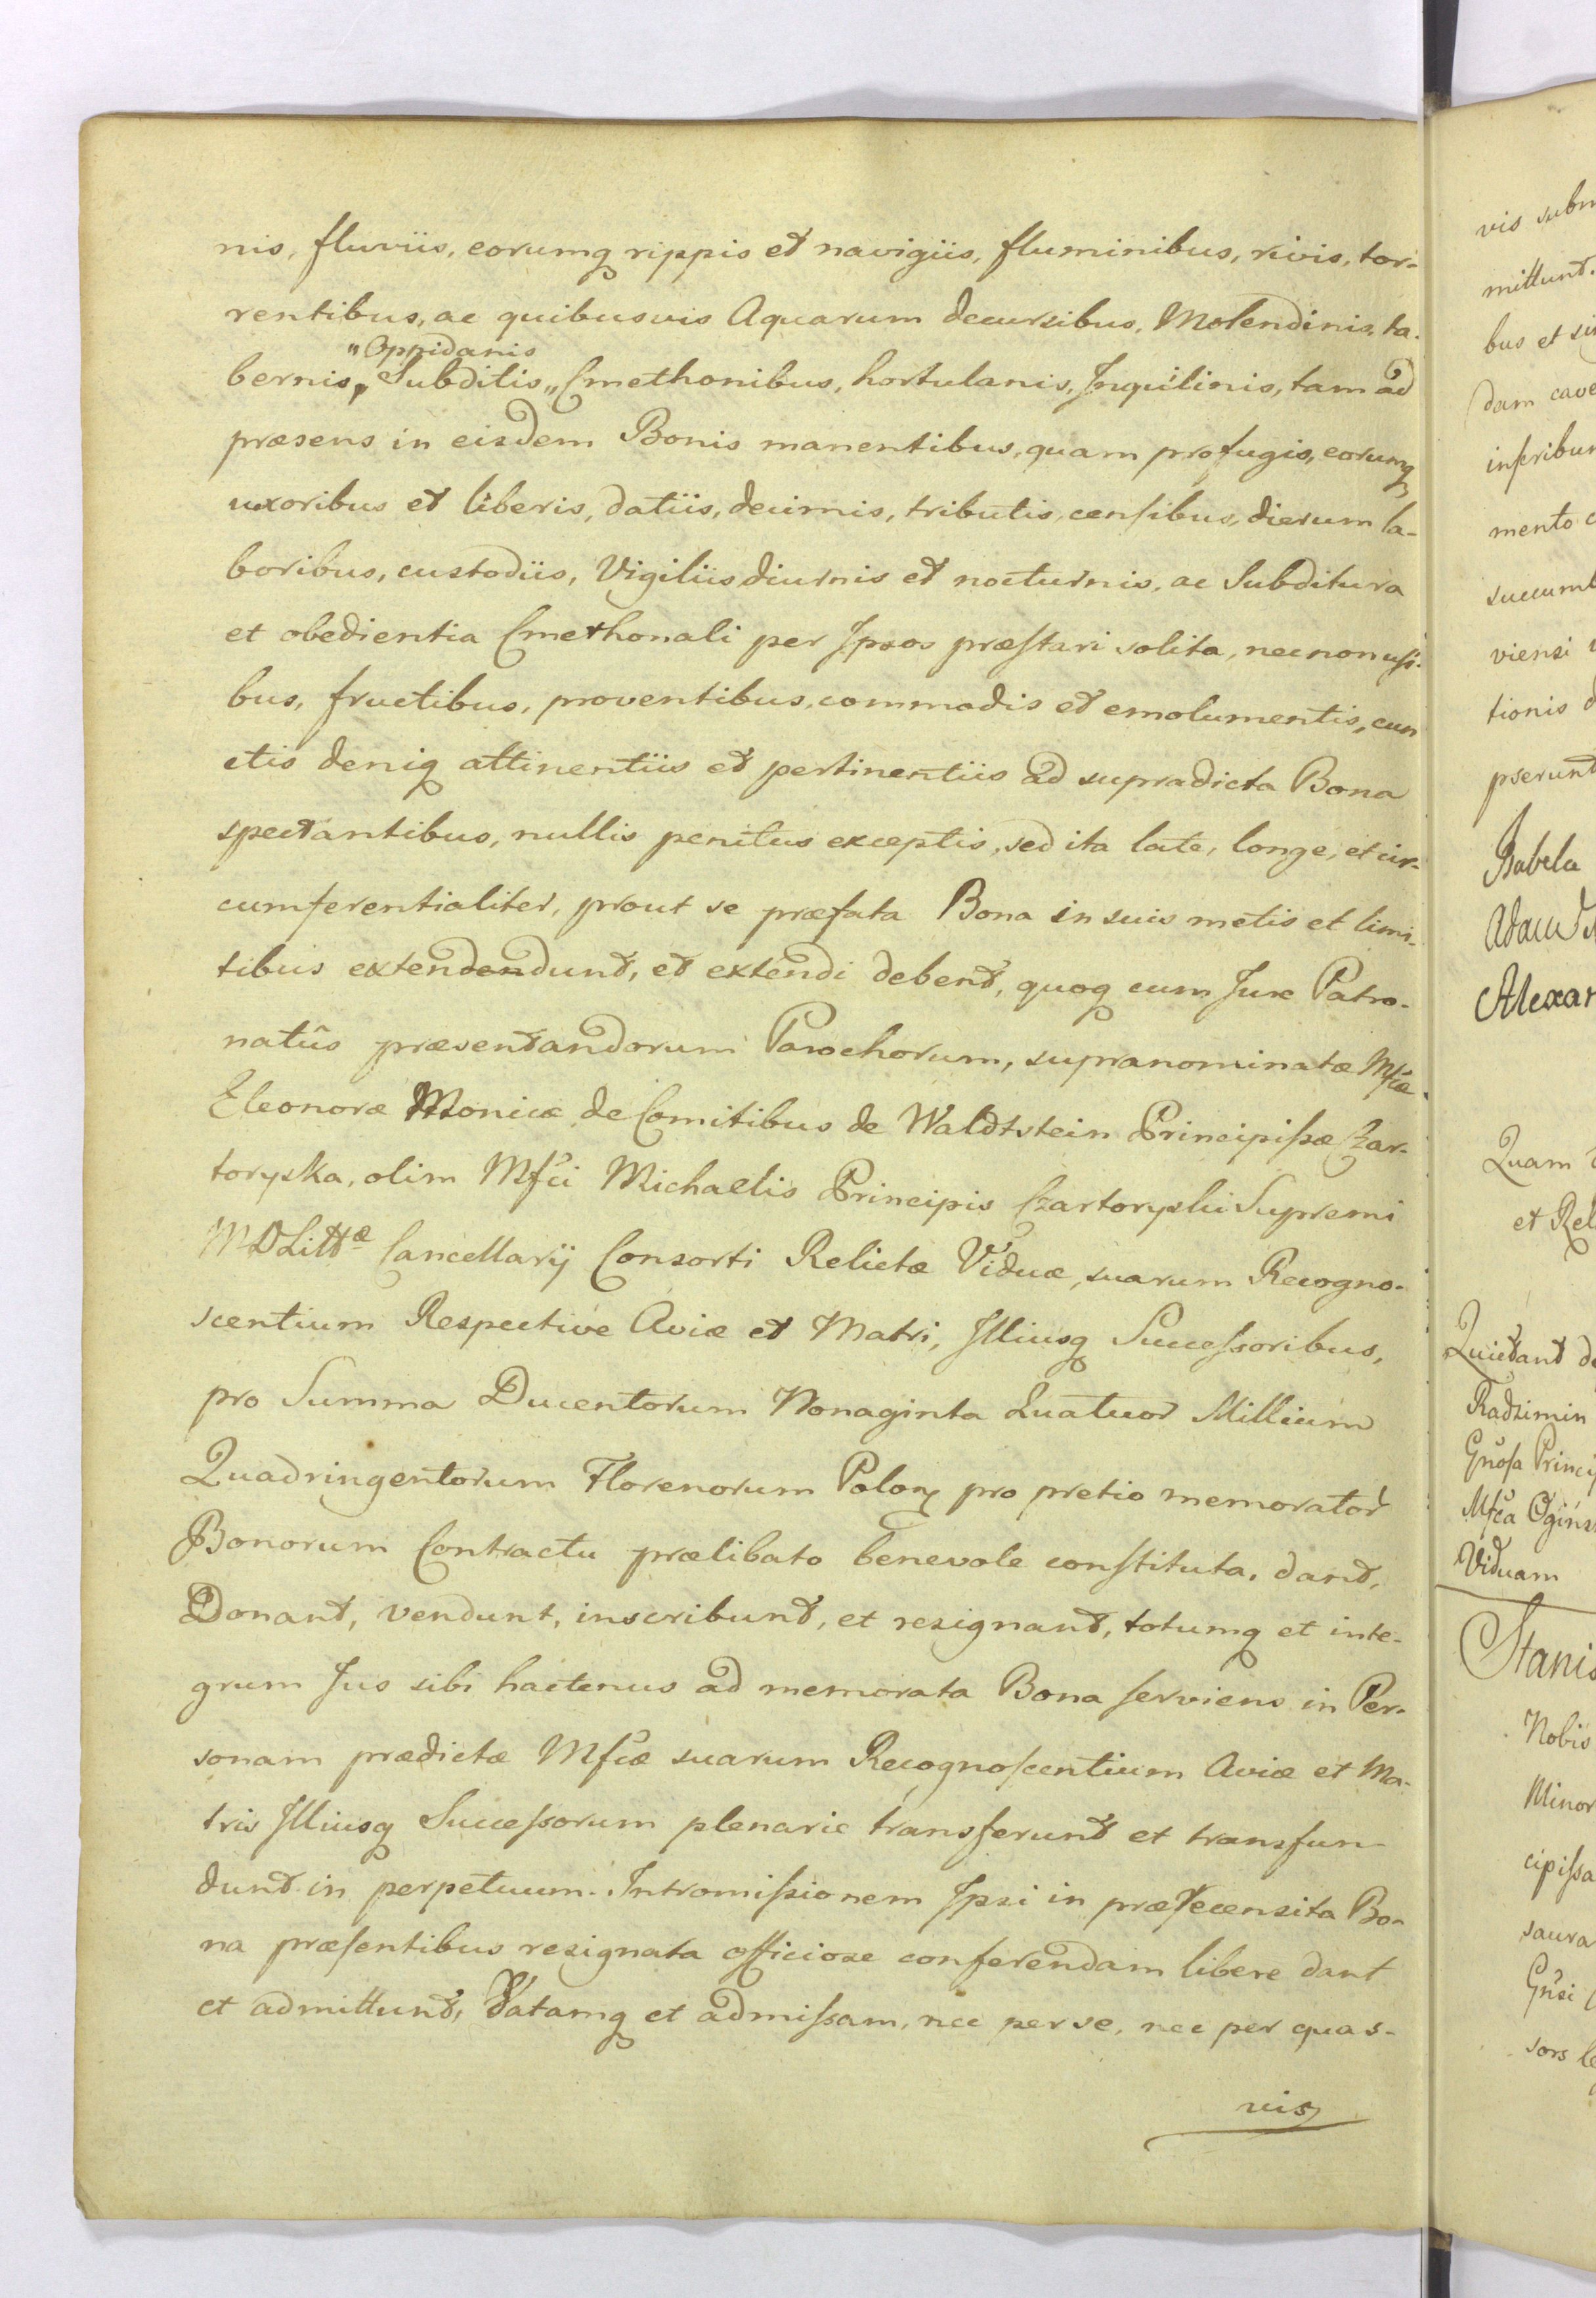 nis, fluviis, eorumq rippis et navigiis, fluminibus, rivis, tor-
rentibus, ac quibusvis Aquarum decursibus, Molendinis, ta-
"Oppidanis
bernis, Subditis „ Cmethonibus, hortulanis, Inquilinis, tam ad
præsens in eisdem Bonis manentibus, quam profugis, eorumq
uxoribus et liberis, datiis, decimis, tributis, censibus, dierum la-
boribus, custodiis, Vigiliis diurnis et nocturnis, ac Subditura
et obedientia Cmethonali per Ipsos præstari solita, necnon usi-
bus, fructibus, proventibus, commodis et emolumentis, cun
ctis deniq attinentiis et pertinentiis ad supradicta Bona
spectantibus, nullis penitus exceptis, sed ita late, longe, et cir-
cumferentialiter, prout se præfata Bona in suis metis et limi-
tibus extendendunt, et extendi debent, quoq cum Jure Patro-
natûs præsentandorum Parochorum, supranominatæ Mfcæ
Eleonoræ Monicæ de Comitibus de Waldtstein Principissæ Czar-
toryska, olim Mfci Michaelis Principis Czartoryski Supremi
MDLittæ Cancellarij Consorti Relictæ Viduæ, suarum Recogno-
scentium Respective Aviæ et Matri, Illiusq Successoribus,
pro Summa Ducentorum Nonaginta Quatuor Millium
Quadringentorum Florenorum Polon pro pretio memorator
Bonorum Contractu prælibato benevole constituta, dant,
Donant, vendunt, inscribunt, et resignant, totumq et inte-
grum Jus sibi hactenus ad memorata Bona serviens in Per-
sonam prædictæ Mfcæ suarum Recognoscentium Aviæ et Ma-
tris Illiusq Successorum plenarie transferunt et transfun-
dunt in perpetuum. Intromissionem Ipsi in præsecensita Bo-
na præsentibus resignata officiose conferendam libere dant
et admittunt, Datamq et admissam, nec per se, nec per quas-
vis
vis subm
mittunt.
bus et si
dam cave
inscribun
mento c
succumb
viensi
tionis d
pserunt
Isabela
Adam
Alexan
Quam
et Rel
Quietant de
Radzimin
Gnosa Princip
Mfca Ogins
Viduam
Stanis
Nobis
Minor
cipissa
saura
Gnsi
sors le